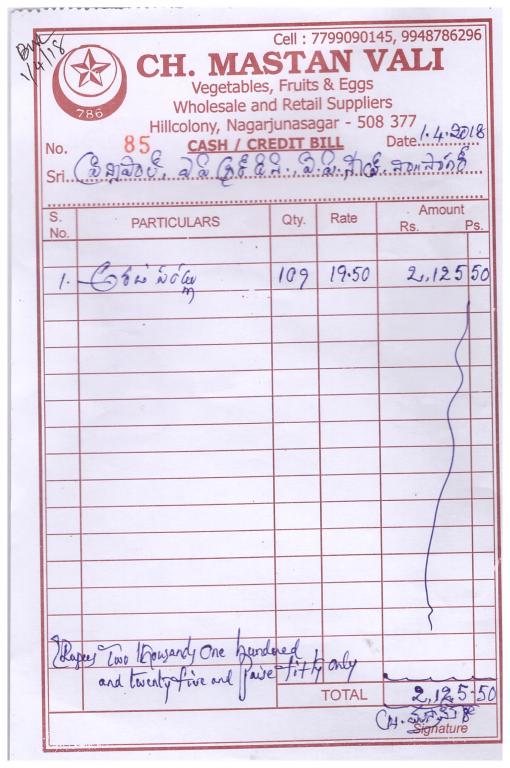 1/4/18
Cell : 7799090145, 9948786296
CH. MASTAN VALI
786
Vegetables, Fruits & Eggs
Wholesale and Retail Suppliers
Hillcolony, Nagarjunasagar - 508 377
No. 85 CASH / CREDIT BILL Date 1.4.2018
Sri.
S. No. PARTICULARS Qty. Rate Amount Rs. Ps.
1. 109 19.50 2,125 50
Rupees Two thousands One hundered
and twenty five and paise fifty only
TOTAL 2,125.50
CH.
Signature